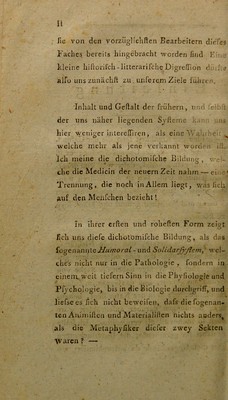 li
sie von den vorzüglichsten Bearbeitern dieses
Faches bereits hingebracht worden sind Eine
kleine historisch-litterarische Digression dürfte
also uns zunächst zu unserem Ziele führen.
Inhalt und Gestalt der frühern, und selbst
der uns näher liegenden Systeme kann uns
hier weniger interessiren, als eine Wahrheit,
welche mehr als jene verkannt worden ist.
Ich meine die dichotomische Bildung, wel-
che die Medicin der neuern Zeit nahm — eine
Trennung, die noch in Allem liegt, was sich
auf den Menschen bezieht!
In ihrer ersten und rohesten Form zeigt
sich uns diese dichotomische Bildung, als das
sogenannte Humoral- und Solidarsystem, wel-
ches nicht nur in die Pathologie, sondern in
einem weit tiefern Sinn in die Physiologie und
Psychologie, bis in die Biologie durchgriff, und
liesse es sich nicht beweisen, dass die sogenan-
ten Animisten und Materialisten nichts anders,
als die Metaphysiker dieser zwey Sekten
waren? —